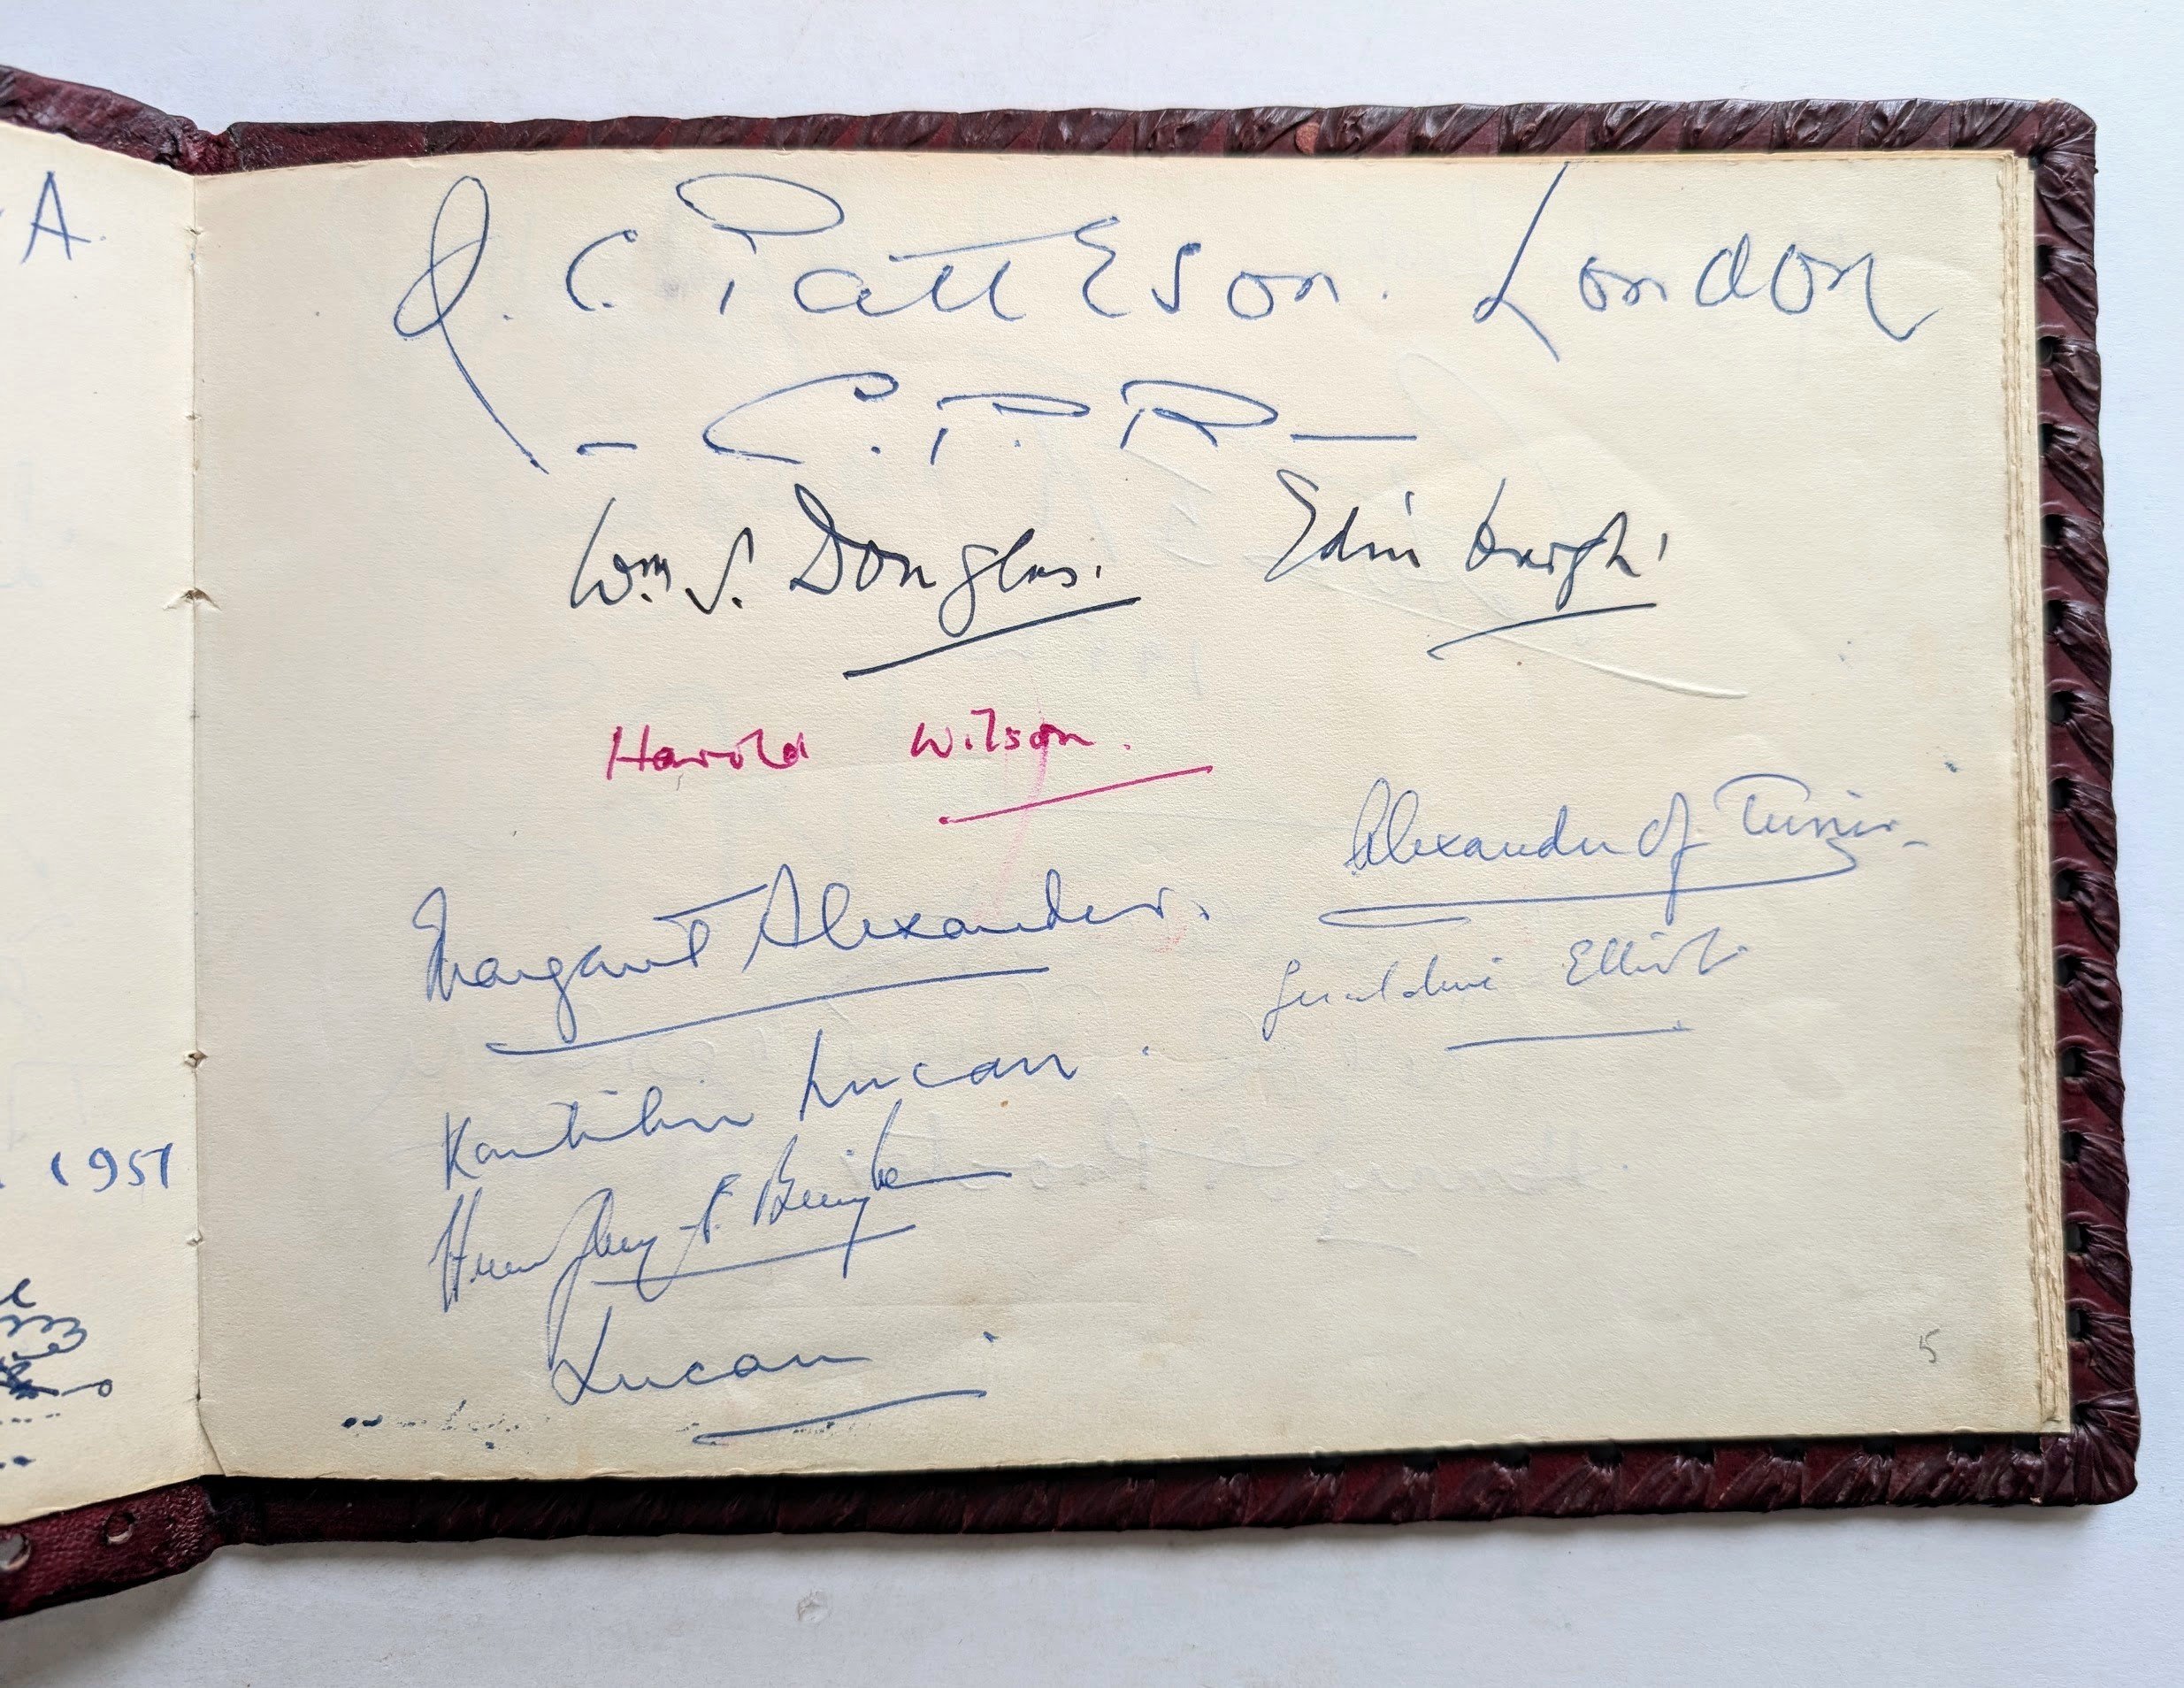 A.
1951
J. C. Patterson. London
- C. P. R -
Wm. S. Douglas. Edinburgh.
Harold Wilson.
Alexander of Tunis
Margaret Alexander.
Geraldine Elliot
Kaitilin Lucan.
Humphrey Bingham
Lucan
5